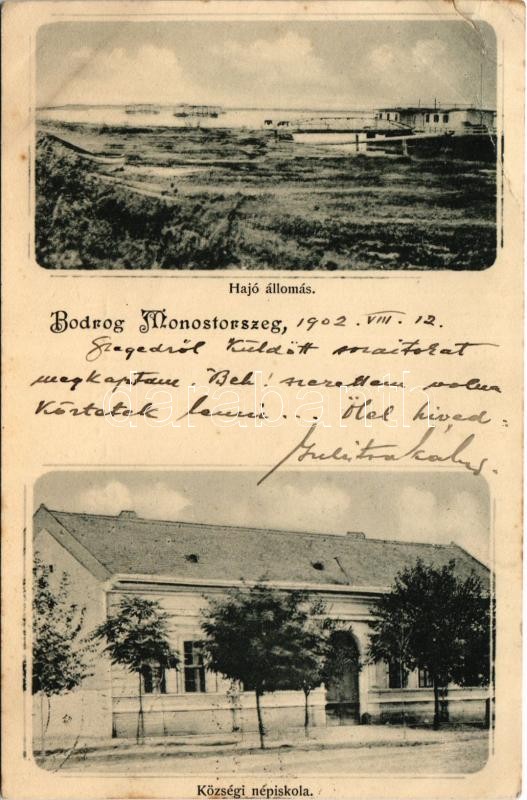 Hajó állomás.
Bodrog Monostorszeg, 1902. VIII. 12.
Szegedről küldött soraitokat
megkaptam. Beh! szerettem volna
köztetek lenni... Ölel hived
darabanth
Községi népiskola.